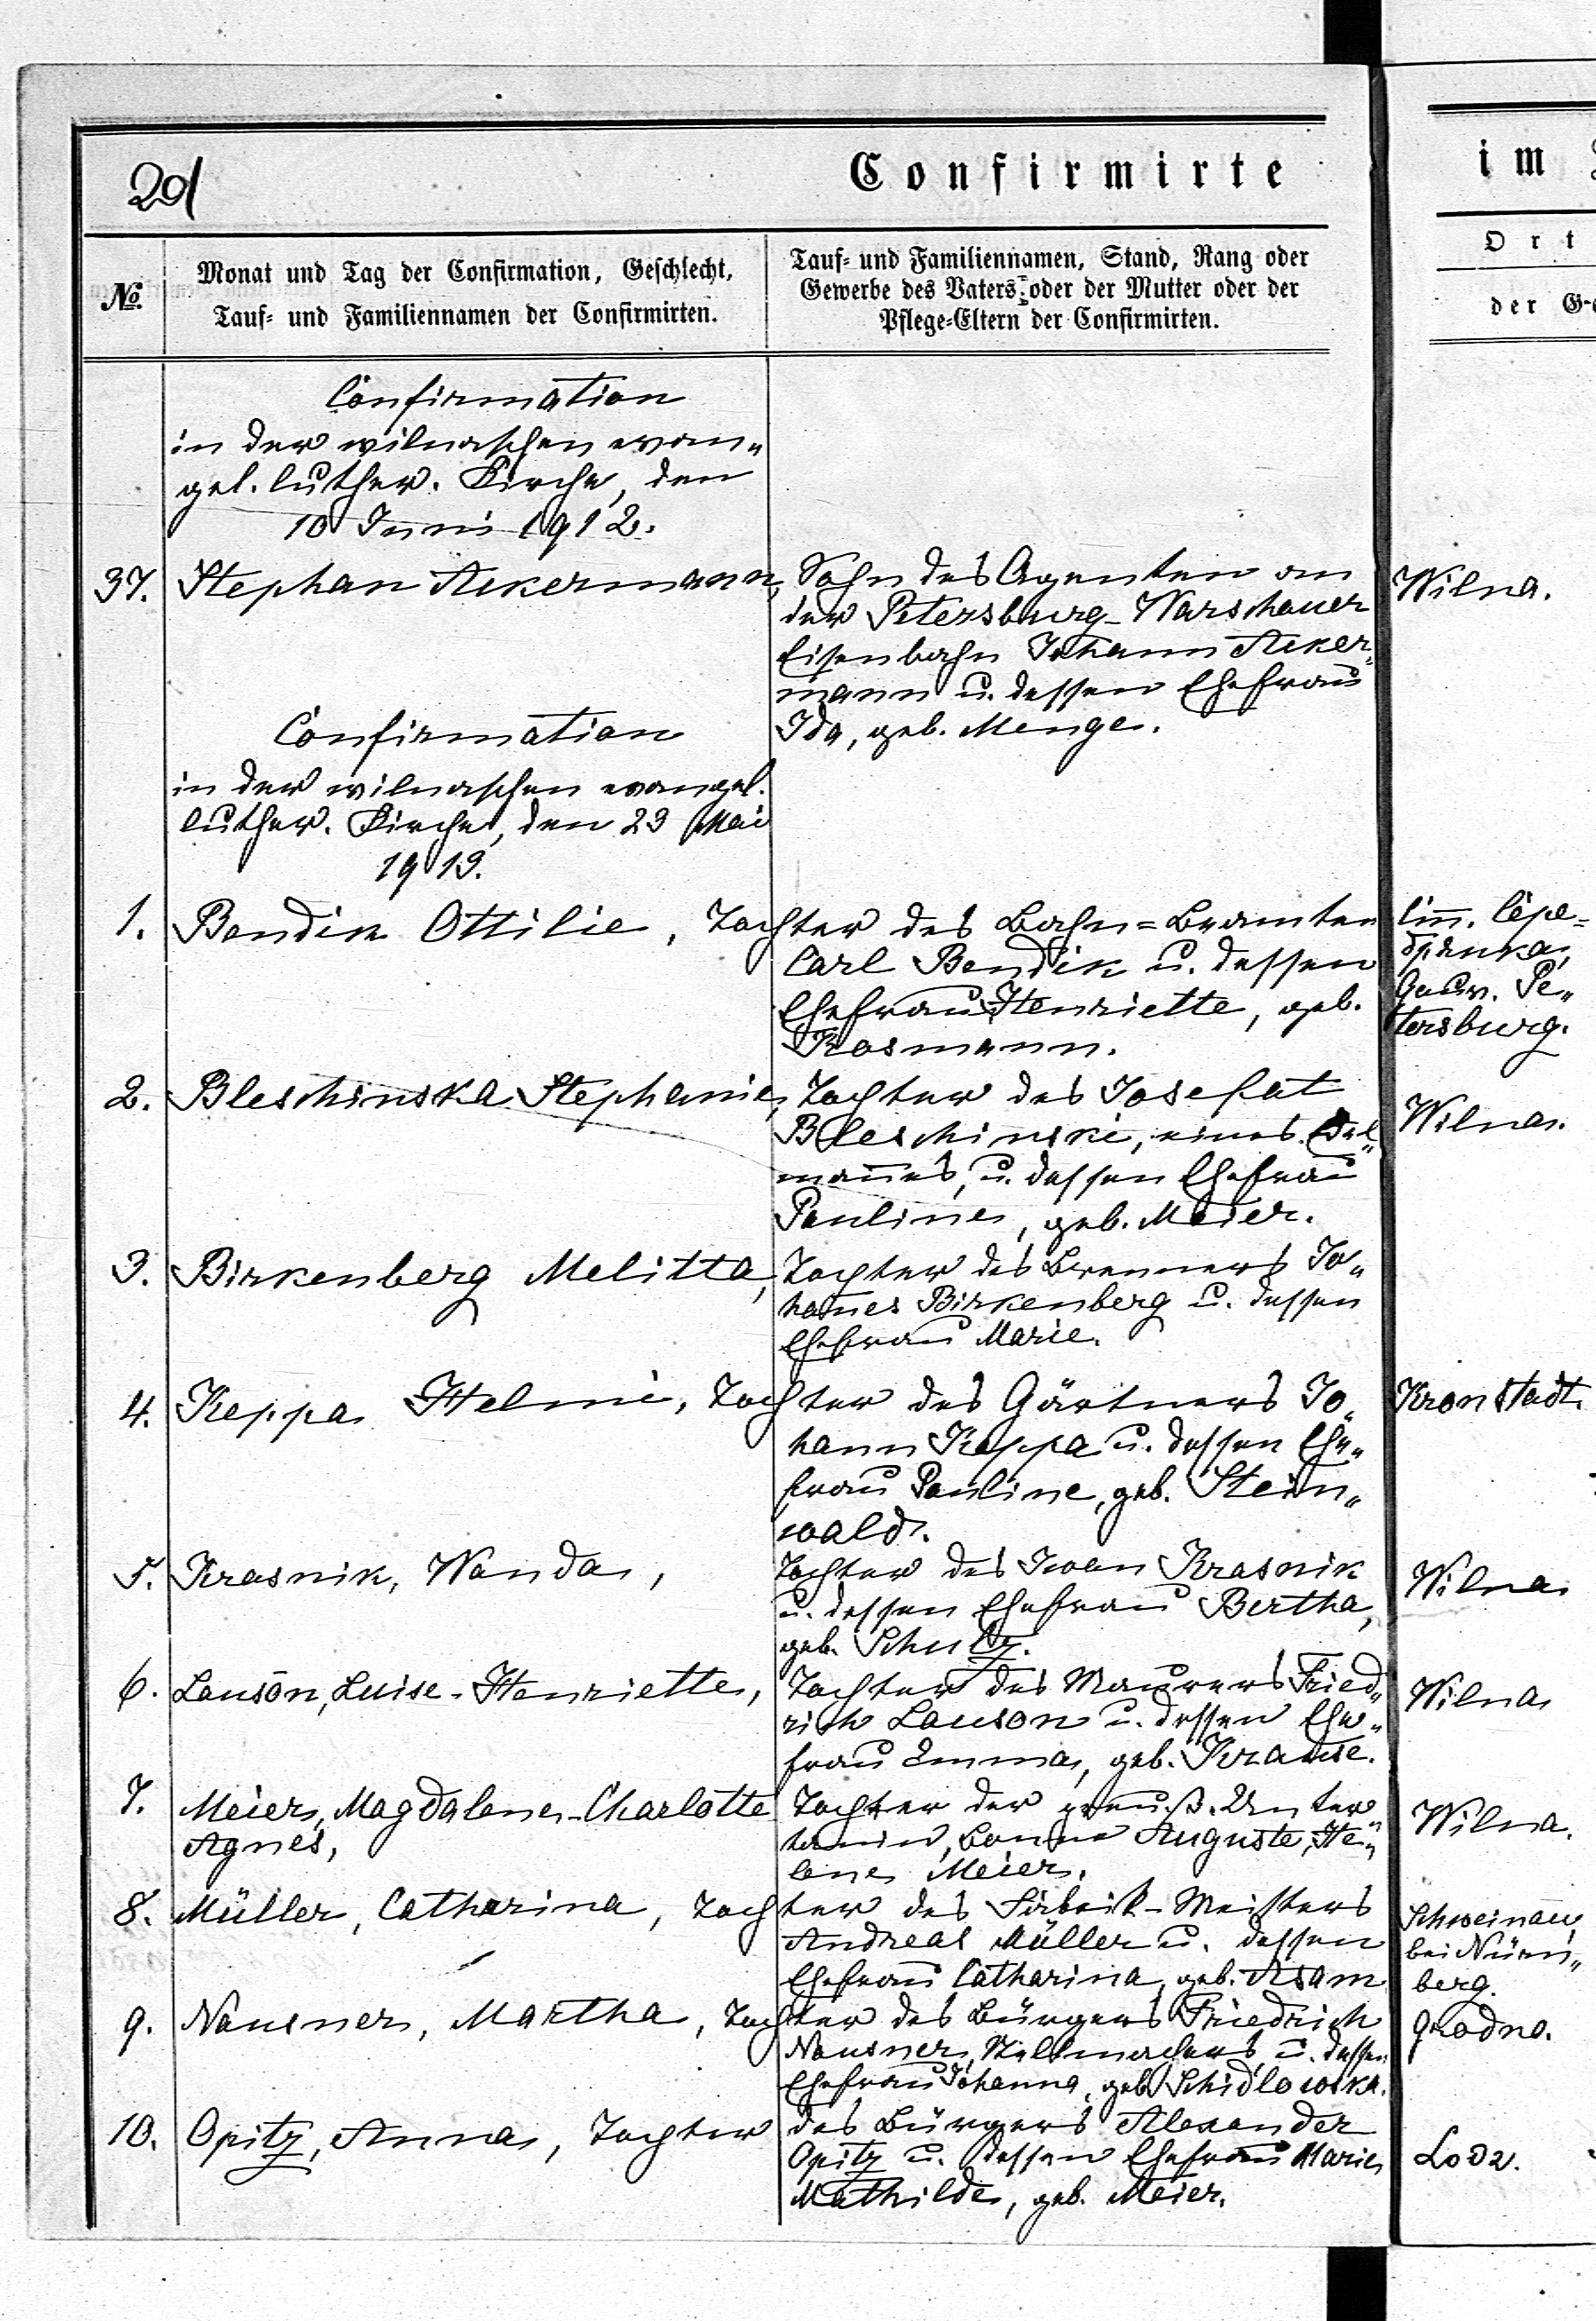 201
Confirmirte
im
№
Monat und Tag der Confirmation, Geschlecht,
Tauf- und Familiennamen der Confirmirten.
Tauf- und Familiennamen, Stand, Rang oder
Gewerbe des Vaters oder der Mutter oder der
Pflege-Eltern der Confirmirten.
Ort
der
Confirmation
in der wilnaschen evan„
gel. luther. Kirche, den
10 Juni 1912.
37. Stephan Ackermann,
Sohn des Agenten an
der Petersburg-Warschauer
Eisenbahn Johann Acker„
mann u. dessen Ehefrau
Ida, geb. Menge.
Wilna.
Confirmation
in der wilnaschen evangel.
luther. Kirche, den 23 Mai
1913.
1. Bendik Ottilie, Tochter des Bahn=Beamten
Carl Bendik u. dessen
Ehefrau Henriette, geb.
Kosmann.
Gouv. Pe„
tersburg.
2. Bleschinska Stephanie,
Tochter des Josefat
Bleschinski, eines Edel„
mannes, u. dessen Ehefrau
Pauline, geb. Meier.
Wilna.
3. Birkenberg Melitta,
Tochter des Brenners Jo„
hannes Birkenberg u. dessen
Ehefrau Marie.
4. Keppa Helmi, Tochter des Gärtners Jo„
hann Keppa u. dessen Ehe„
frau Pauline, geb. Stein„
wald.
Kronstadt.
5. Krasnik, Wanda,
Tochter des Iwan Krasnik
u. dessen Ehefrau Bertha,
geb. Schultz.
Wilna
6. Lauson, Luise-Henriette,
Tochter des Maurers Fried„
rich Lauson u. dessen Ehe„
frau Emma, geb. Krause.
Wilna
7. Meier, Magdalene-Charlotte
Agnes,
Tochter der preuß. Unter„
tanin, Bonne Auguste, He„
lene Meier.
Wilna.
8. Müller, Catharina, Tochter des Meisters
Andreas Müller u. dessen
Ehefrau Catharina, geb. Asam
Schweinau,
bei Nürn„
berg.
9. Nausner, Martha, Tochter des Bürgers Friedrich
Nausner, Stellmachers, u. dessen
Ehefrau Johanna, geb. Schidlowska.
Grodno.
10. Opitz, Anna, Tochter des Bürgers Alexander
Opitz u. dessen Ehefrau Marie
Mathilde, geb. Meier.
Lodz.